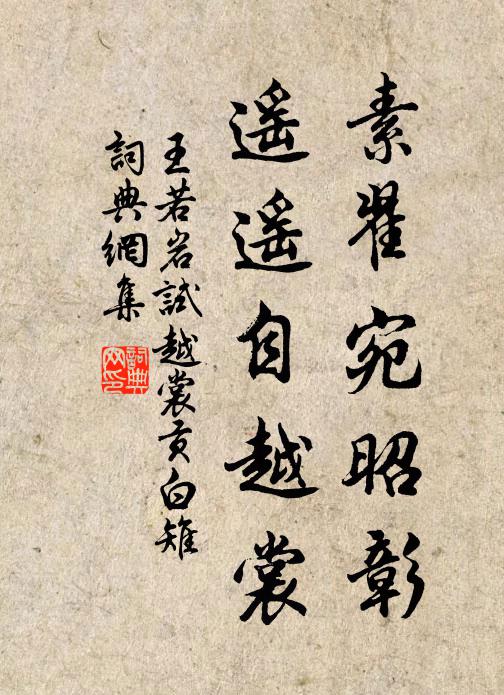 素翟宛昭彰
遥遥自越裳
王若岩試越裳貢白雉
詞典網集
詞典网印